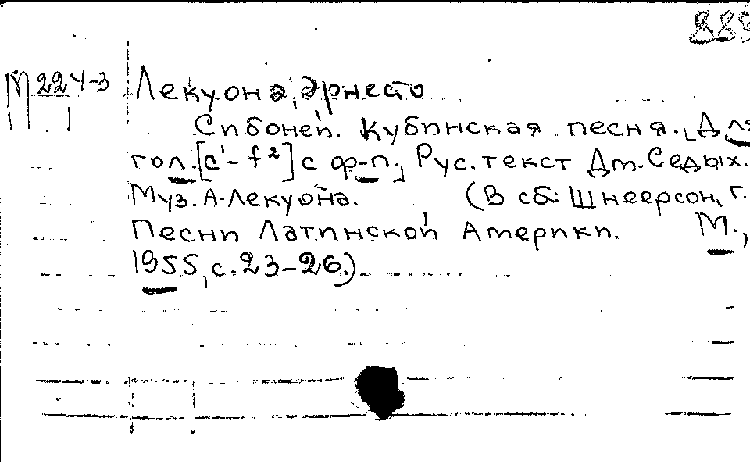 889
М 224-3 Лекуона, Эрнесто
Сибоней. Кубинская песня. [Для
гол. [c¹-f²] с ф-п.] Рус. текст Дм. Седых.
Муз. А. Лекуона. (В сб: Шнеерсон, Г.
Песни Латинской Америки. М.,
1955, с. 23-26.)